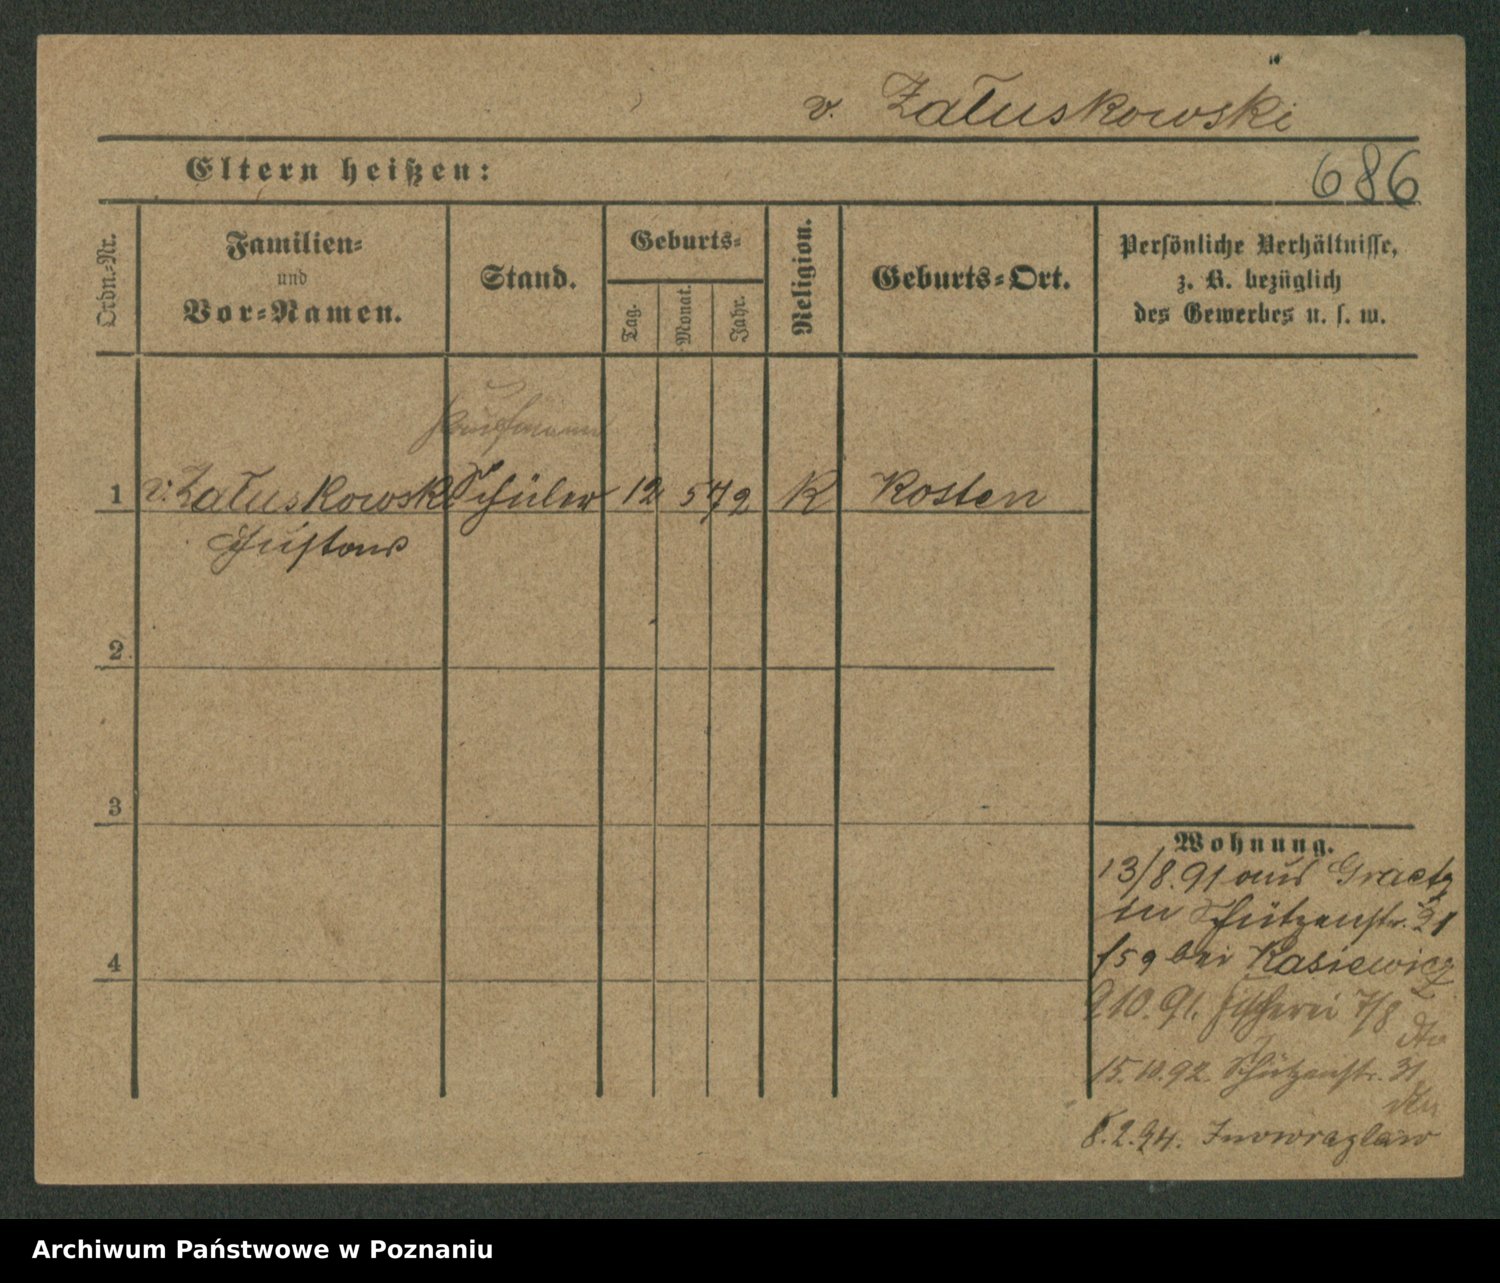 v. Załuskowski
Eltern heißen:
686
Ordn.-Nr.
Familien-
und
Vor-Namen.
Stand.
Geburts-
Tag.
Monat.
Jahr.
Religion.
Geburts-Ort.
Persönliche Verhältnisse,
z. B. bezüglich
des Gewerbes u. s. w.
Kaufmann
1 v. Załuskowski Schüler 12 5 72 K Kosten
2
3
4
Wohnung.
13/8.91 aus Graetz
in Schützenstr. 21
bei Kasiewicz
2 10. 91. Fischerei 7/8
dto
15.10.92. Schützenstr. 31
8.2.94. Inowrazlaw
Archiwum Państwowe w Poznaniu